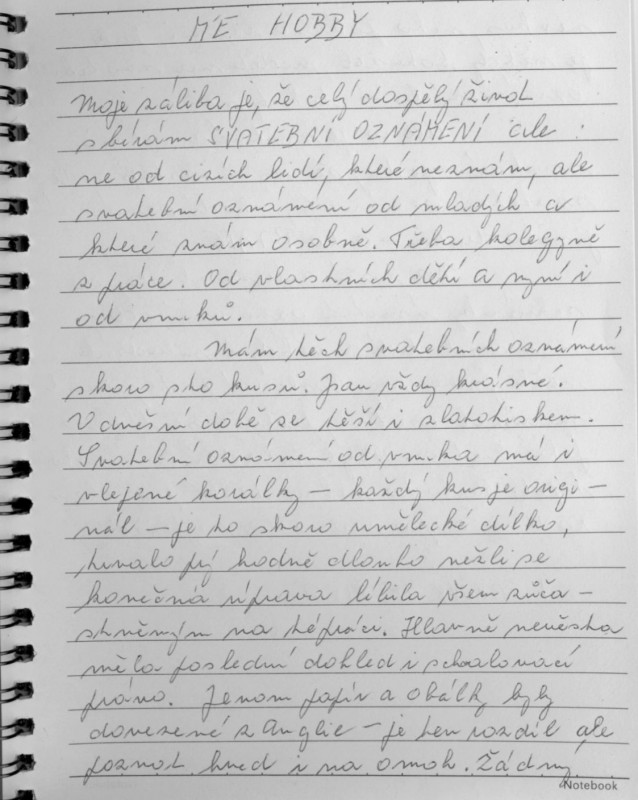 MÉ HOBBY
Moje záliba je, že celý dospělý život
sbírám SVATEBNÍ OZNÁMENÍ ale
ne od cizích lidí, které neznám, ale
svatební oznámení od mladých a
které znám osobně. Třeba kolegyně
z práce. Od vlastních dětí a nyní i
od vnuků.
Mám těch svatebních oznámení
skoro sto kusů. Jsou vždy krásné.
V dnešní době se těší i zlatotiskem.
Svatební oznámení od vnuka má i
vlepené korálky – každý kus je origi-
nál – je to skoro umělecké dílko,
trvalo prý hodně dlouho nežli se
konečná úprava líbila všem zúča-
stněným na té práci. Hlavně nevěsta
měla poslední dohled i schvalovací
právo. Jenom papír a obálky byly
dovezené z Anglie – je ten rozdíl ale
poznat hned i na omak. Žádný
Notebook